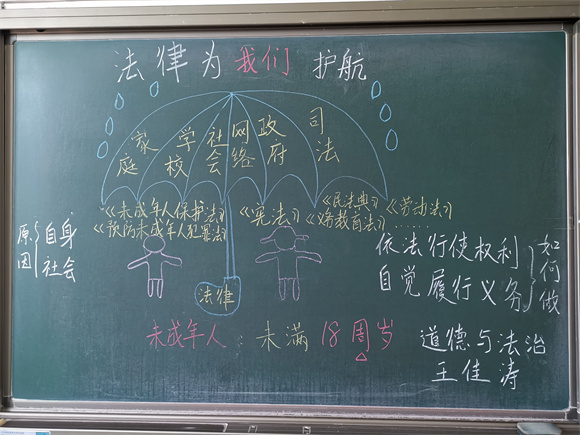 法律为我们护航
家庭 学校 社会 网络 政府 司法
《未成年人保护法》
《预防未成年人犯罪法》
《宪法》
《民法典》《劳动法》
《义务教育法》……
原因
自身
社会
法律
依法行使权利
自觉履行义务
如何做
未成年人：未满18周岁
道德与法治
王佳涛